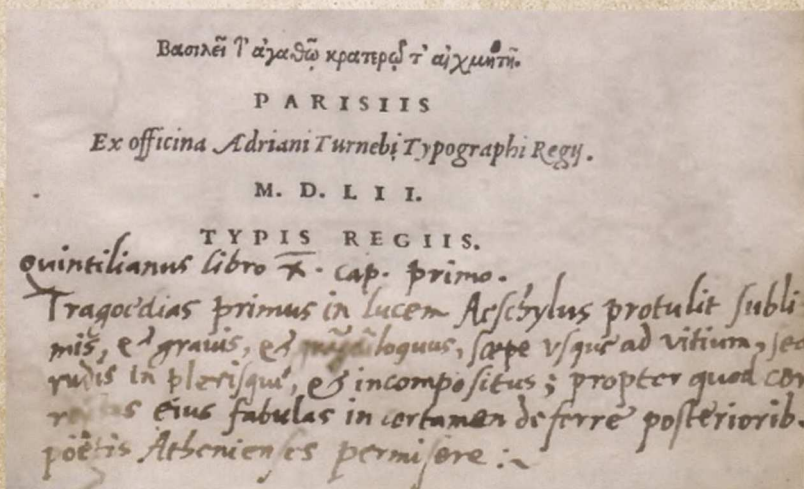 Βασιλεῖ τ' ἀγαθῷ κρατερῷ τ' αἰχμητῇ.
PARISIIS
Ex officina Adriani Turnebi Typographi Regij.
M. D. LII.
TYPIS REGIIS.
Quintilianus libro X. cap. primo.
Tragoedias primus in lucem Aeschylus protulit subli
mis, & grauis, & loquus, sæpe vsque ad vitium, sed
rudis in plerisque, & incompositus; propter quod cor
eius fabulas in certamen deferre posteriorib.
poëtis Athenienses permisere :~